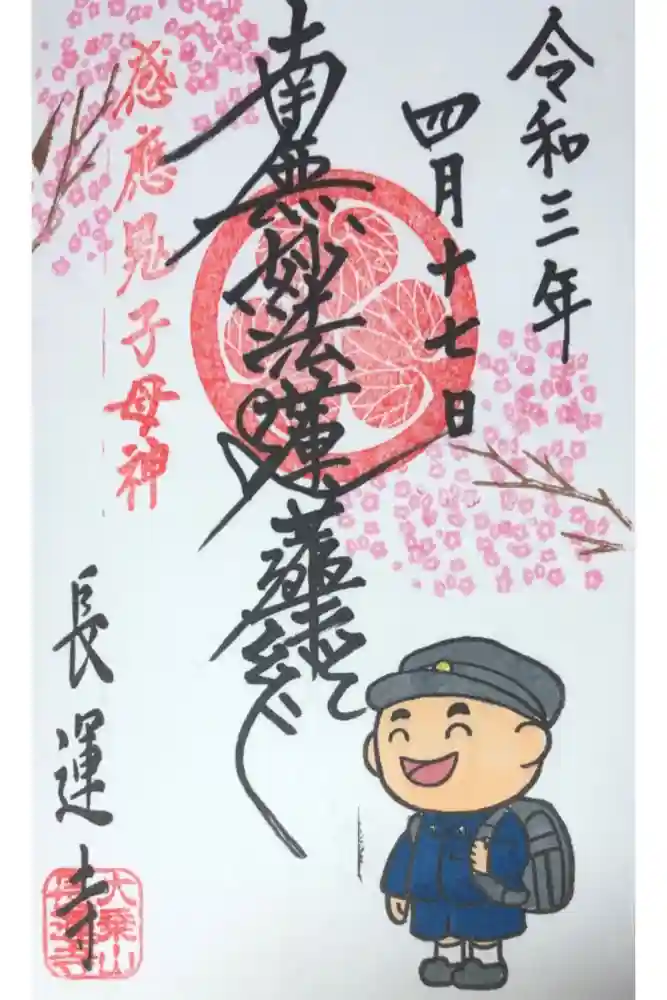 令和三年
四月十七日
南無妙法蓮華経
感應鬼子母神
長運寺
大乗山
長運寺